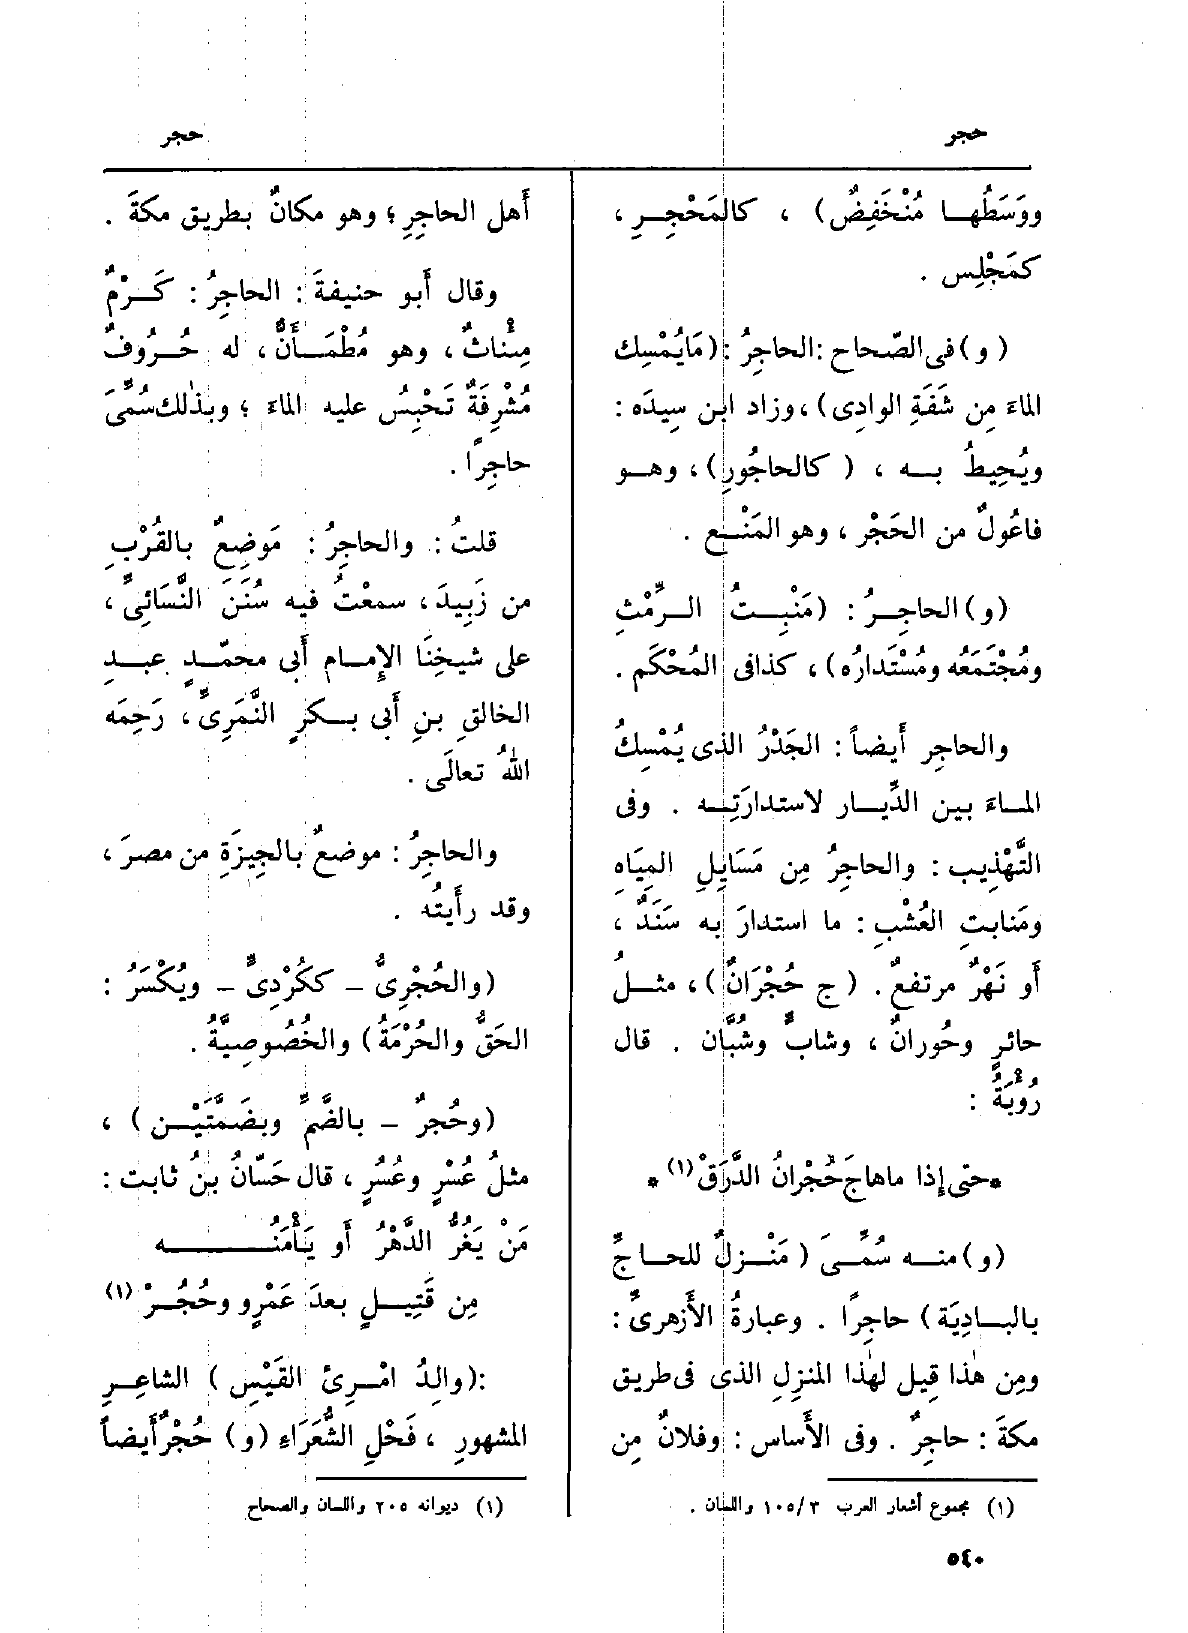 حجر
حجر
ووَسَطُهـا مُنْخَفِضٌ) ، كالمَحْجِـرِ ،
كمَجْلِس .
(و)فى الصّحاح :الحاجِرُ :(مَايُمْسِك
الماءَ مِن شَفَةِ الوادِى)،وزاد ابن سِيدَه :
ويُحِيطُ بـه ، (كالحاجُورِ)، وهـو
فاعُولٌ من الحَجْر ، وهو المَنْـع .
(و)الحاجِـرُ : (مَنْبِـتُ الـرِّمْثِ
ومُجْتَمَعُه ومُسْتَدارُه)، كذافى المُحْكَم .
والحاجِر أيضاً : الجَدْرُ الذى يُمْسِكُ
المـاءَ بين الدِّيـار لاستدارَتِـه . وفى
التَّهْذِيب : والحاجِرُ مِن مَسَايِلِ المِيَاهِ
ومَنابتِ العُشْبِ : ما استدارَ به سَنَدٌ ،
أو نَهْرٌ مرتفعٌ . (ج حُجْرَانٌ)، مثـلُ
حائرٍ وحُورانٌ ، وشابٌّ وشُبَّان . قال
رُؤْبَةُ :
*حتى إذا ماهاجَ حُجْرانُ الدَّرَقْ (١) *
(و)منـه سُمِّـىَ (مَنْـزِلٌ للحـاجِّ
بالبـادِيَة) حاجِرًا . وعبارةُ الأزهرىّ :
ومِن هٰذا قِيل لهٰذا المنزِلِ الذى فى طريق
مكةَ : حاجِرٌ . وفى الأَساس : وفلانٌ مِن
(١) مجموع أشعار العرب ٣/ ١٠٥ واللسان .
أَهل الحاجِرِ ؛ وهو مكانٌ بطريق مكةَ .
وقال أَبو حنيفةَ : الحاجِرُ : كَـرْمٌ
مِئْناثٌ، وهو مُطْمَـأَنٌّ، له حُـرُوفٌ
مُشْرِفَةٌ تَحْبِسُ عليه الماءَ ؛ وبذٰلك سُمِّىَ
حاجِرًا .
قلتُ : والحاجِرُ : مَوضِعٌ بالقُرْبِ
من زَبِيدَ، سمعْتُ فيه سُنَنَ النَّسَائِىِّ،
على شيخِنَا الإِمـام أَبى محمّـدٍ عبـدِ
الخالقِ بنِ أَبى بـكرٍ النَّمَرِىِّ، رَحِمَه
اللهُ تعالَى .
والحاجِرُ : موضعٌ بالجِيزَةِ من مصرَ ،
وقد رأَيتُه .
(والحُجْرِىُّ – ككُرْدِىٍّ – ويُكْسَرُ :
الحَقُّ والحُرْمَةُ) والخُصُوصِيَّةُ .
(وحُجرٌ – بالضَّمِّ وبضَمَّتَيْـن) ،
مثلُ عُسْرٍ وعُسُرٍ ، قال حَسّانُ بنُ ثابت :
مَنْ يَغُرُّ الدَّهْرُ أَو يَأْمَنُـــــه
مِن قَتِيـلٍ بعدَ عَمْرٍو وحُجُـرْ (١)
:(والِدُ امْـرِئ القَيْسِ) الشاعِـرِ
المشهورِ ، فَحْلِ الشُّعَرَاءِ (و) حُجْرٌ أَيضاً
(١) ديوانه ٢٠٥ واللسان والصحاح
٥٤٠